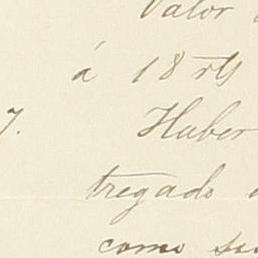 Valor
á 18 rls
7. Haber
tregado
como